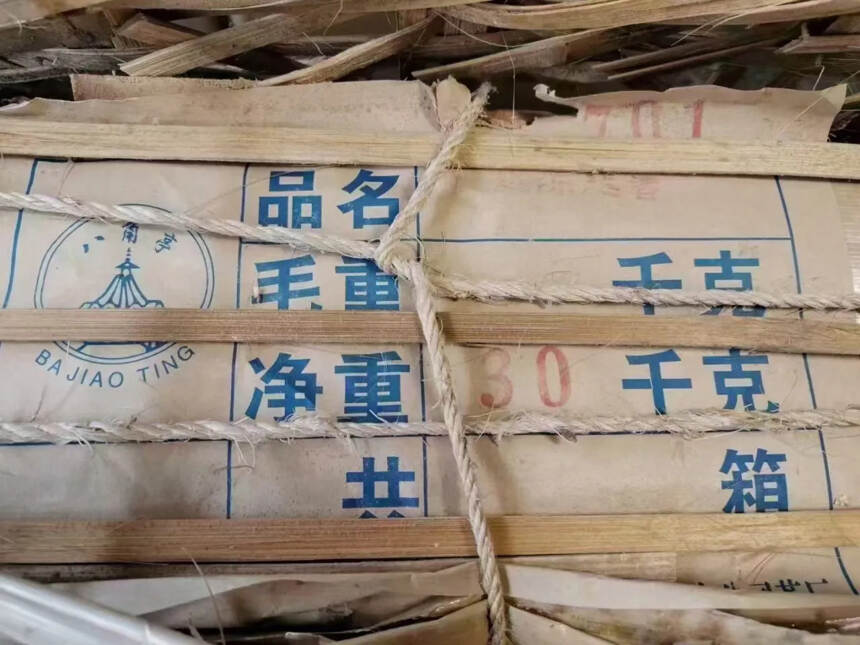 701
品名
八角亭
BAJIAO TING
毛重 千克
净重 30 千克
共 箱